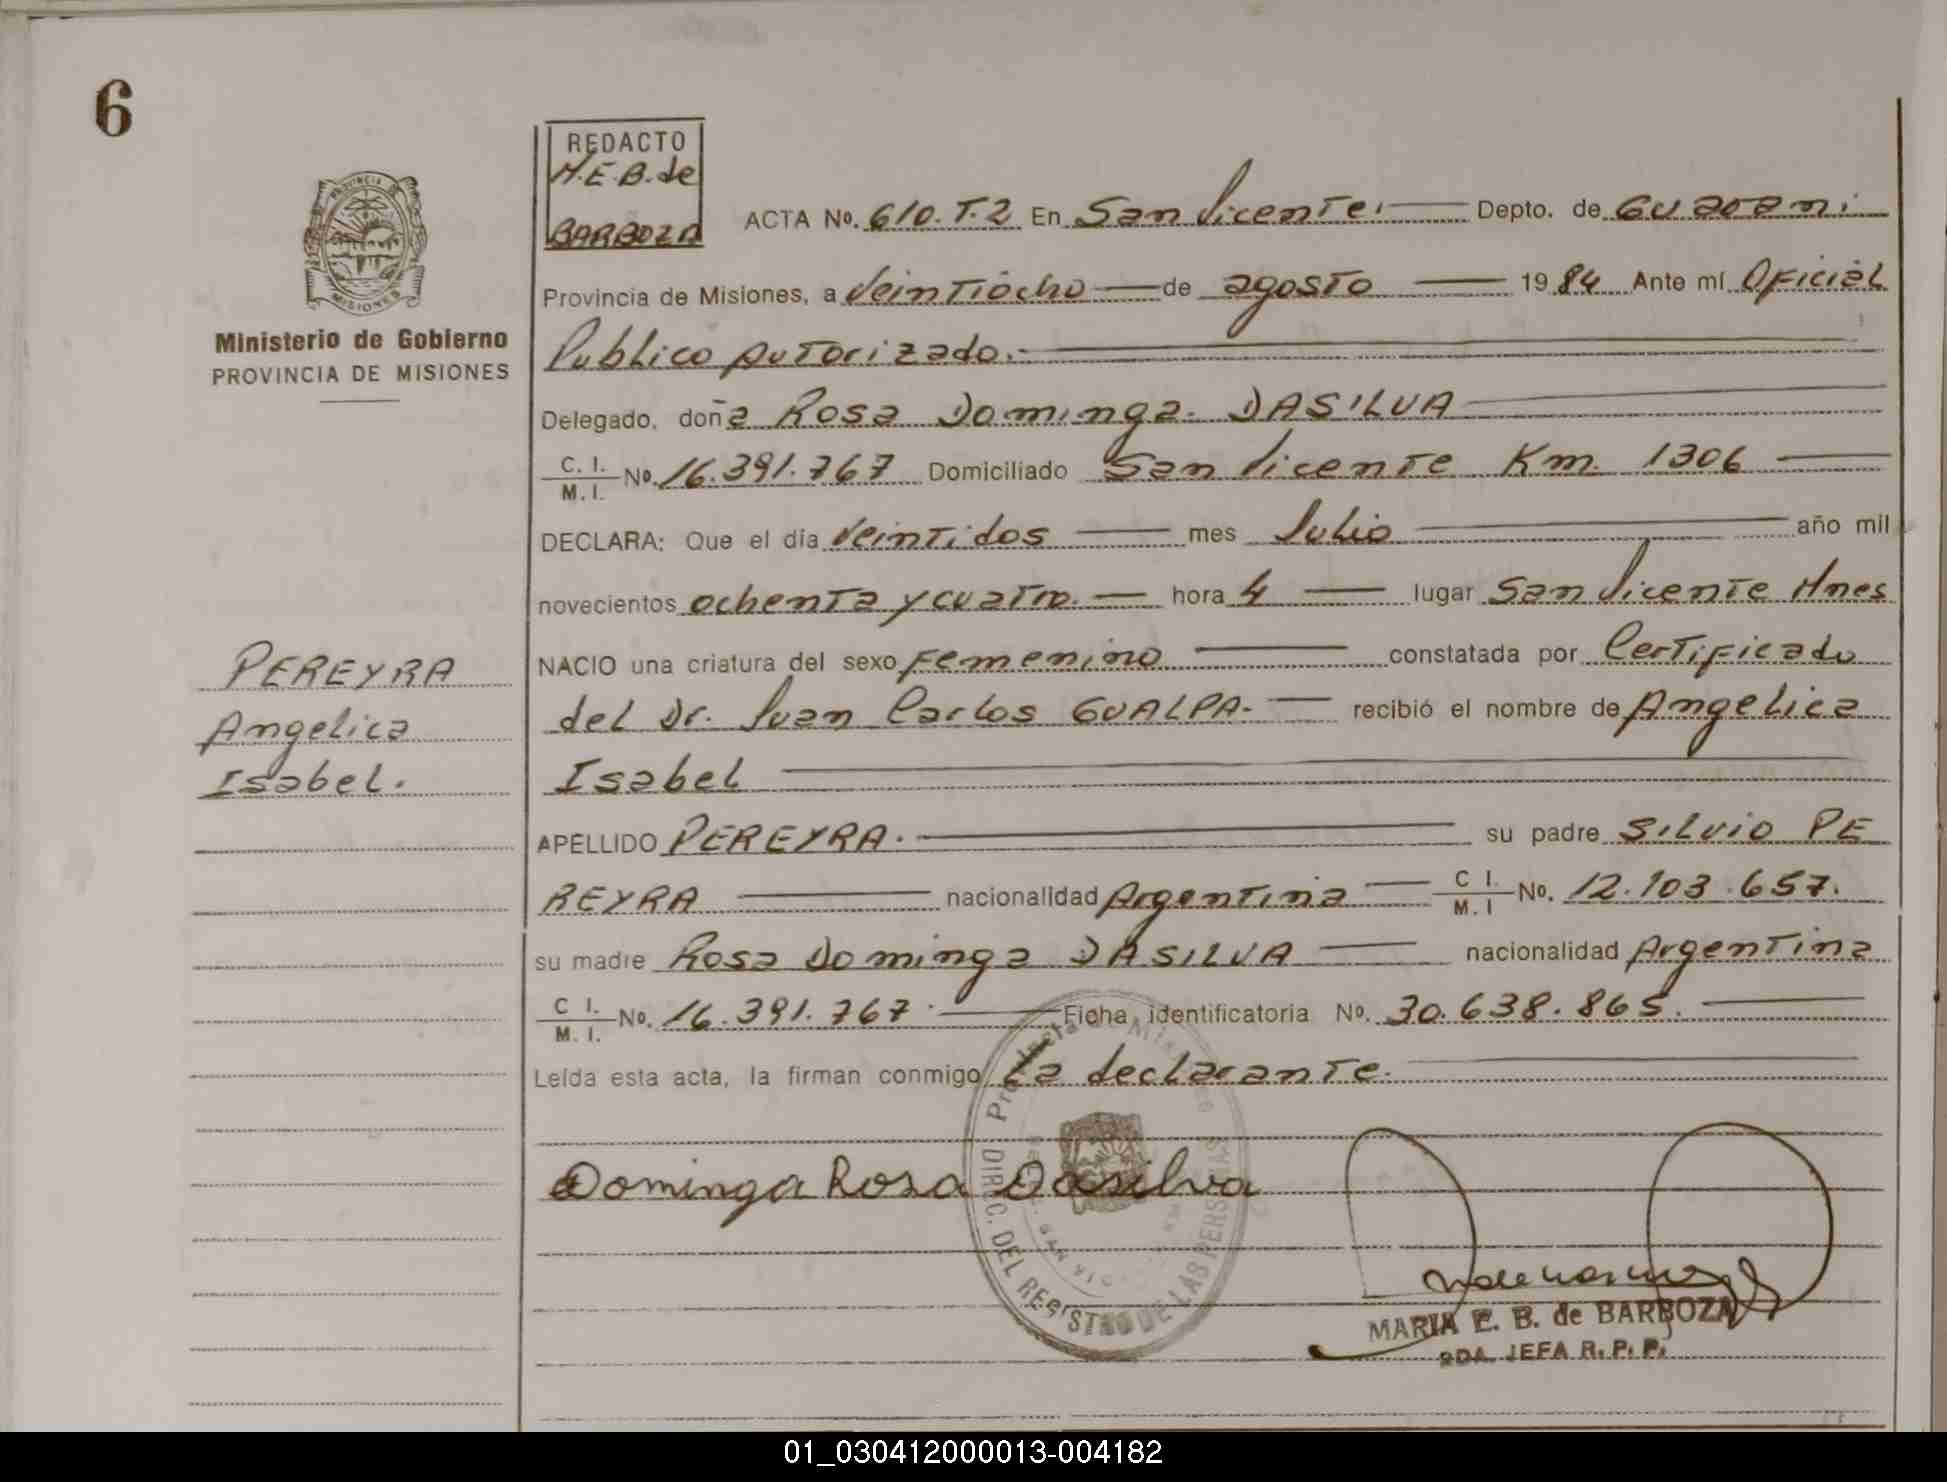 6
REDACTO
M.E.B. de
BARBOZA
PROVINCIA DE
MISIONES
Ministerio de Gobierno
PROVINCIA DE MISIONES
ACTA No. 610.T.2 En San Vicente. Depto. de Guarani.
Provincia de Misiones, a Veintiocho de agosto 1984 Ante mí Oficial
Publico Autorizado.
Delegado, doña Rosa Dominga. DASILVA
C. I. / M. I. No. 16.391.767 Domiciliado San Vicente Km. 1306
DECLARA: Que el día Veintidos mes Julio año mil
novecientos ochenta y cuatro. hora 4 lugar San Vicente Mnes
NACIO una criatura del sexo Femenino constatada por Certificado
del Dr. Juan Carlos GUALPA. recibió el nombre de Angelica
Isabel
APELLIDO PEREYRA. su padre Silvio PE
REYRA nacionalidad Argentina C I. / M. I No. 12.103.657.
su madre Rosa Dominga DASILVA nacionalidad Argentina
C I. / M. I. No. 16.391.767. Ficha identificatoria No. 30.638.865.
Leída esta acta, la firman conmigo La declarante.
PEREYRA
Angelica
Isabel.
Dominga Rosa Dasilva
DIREC. DEL REGISTRO DE LAS PERSONAS
MARIA E. B. de BARBOZA
2DA. JEFA R. P. P.
01_030412000013-004182